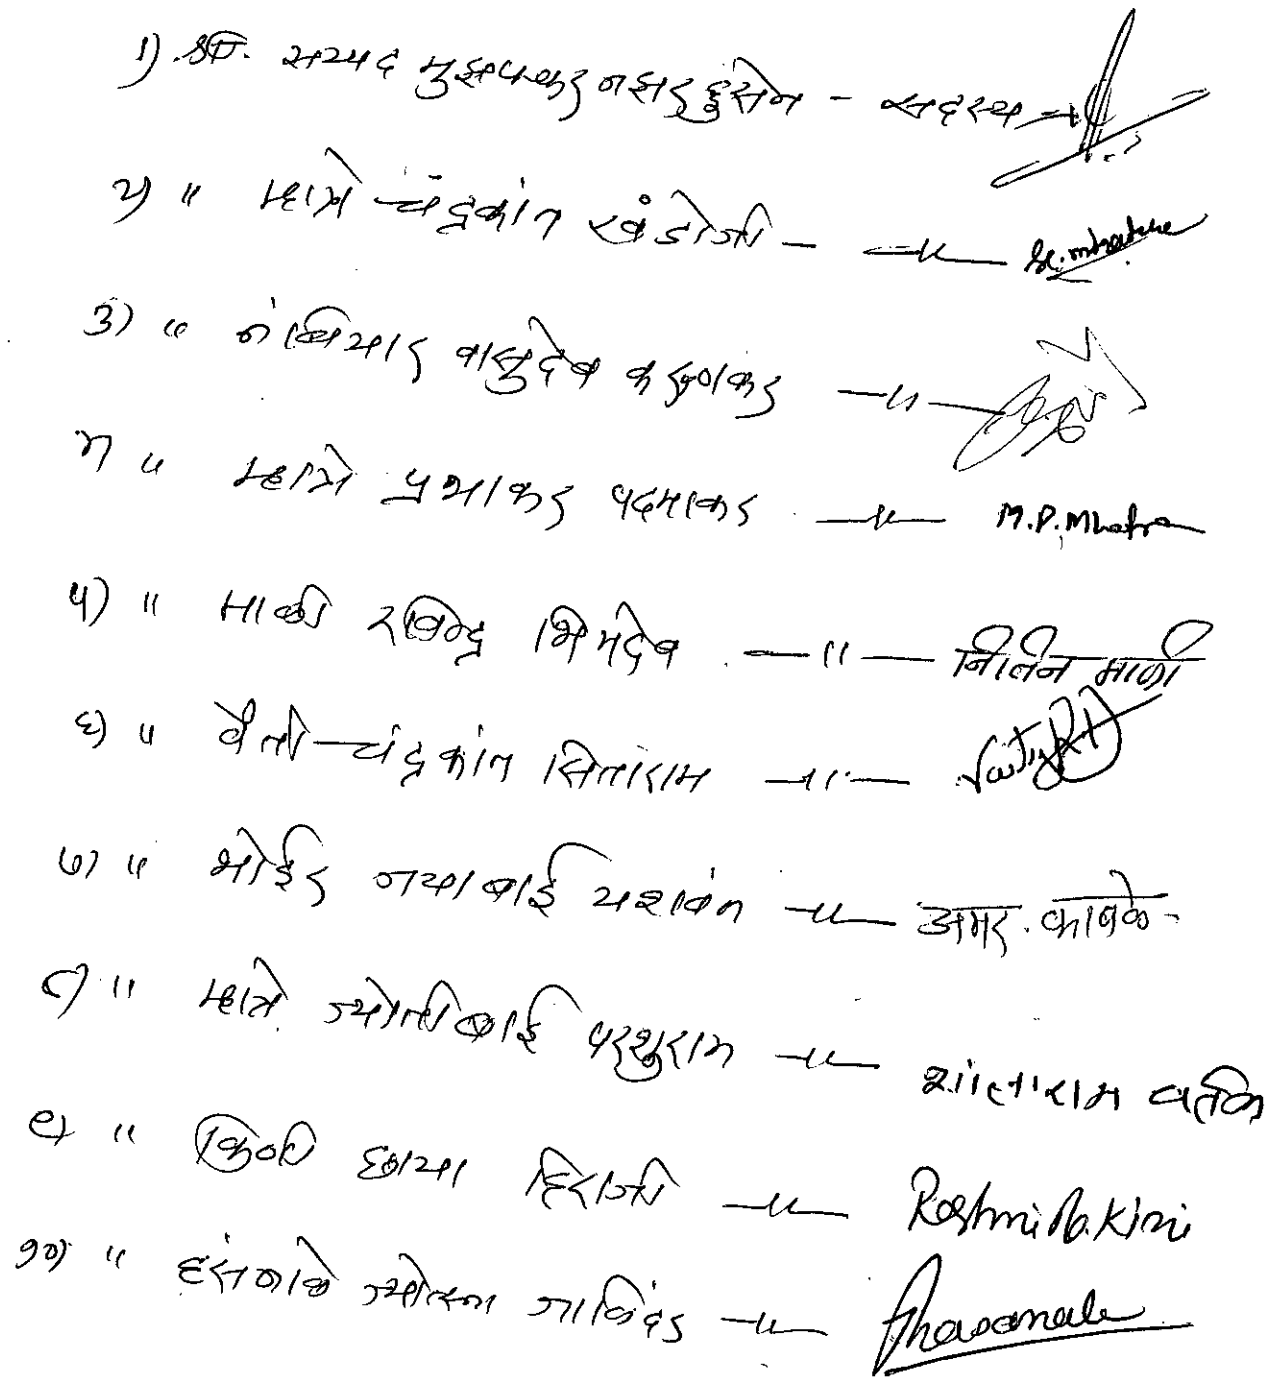 १) श्री. सय्यद मुझफ्फर नझर हुसेन - सदस्य -
२) " म्हात्रे चंद्रकांत खंडोजी - — " — Sc. mhatre
३) " नंबियार वासुदेव करुणाकर — " —
४) " म्हात्रे प्रभाकर पदमाकर — " — M.P. Mhatre
५) " माळी रविन्द्र भिमदेव — " — नितिन माळी
६) " वैती चंद्रकांत सिताराम — " — Vaity
७) " भोईर जयाबाई यशवंत — " — अमर.
८) " म्हात्रे ज्योतीबाई परशुराम — " — शांताराम वर्तक
९) " किणी छाया हिराजी — " — Rashmi Kini
१०) " हसनाळे ज्योत्स्ना जालिंदर — " — Jhasanale